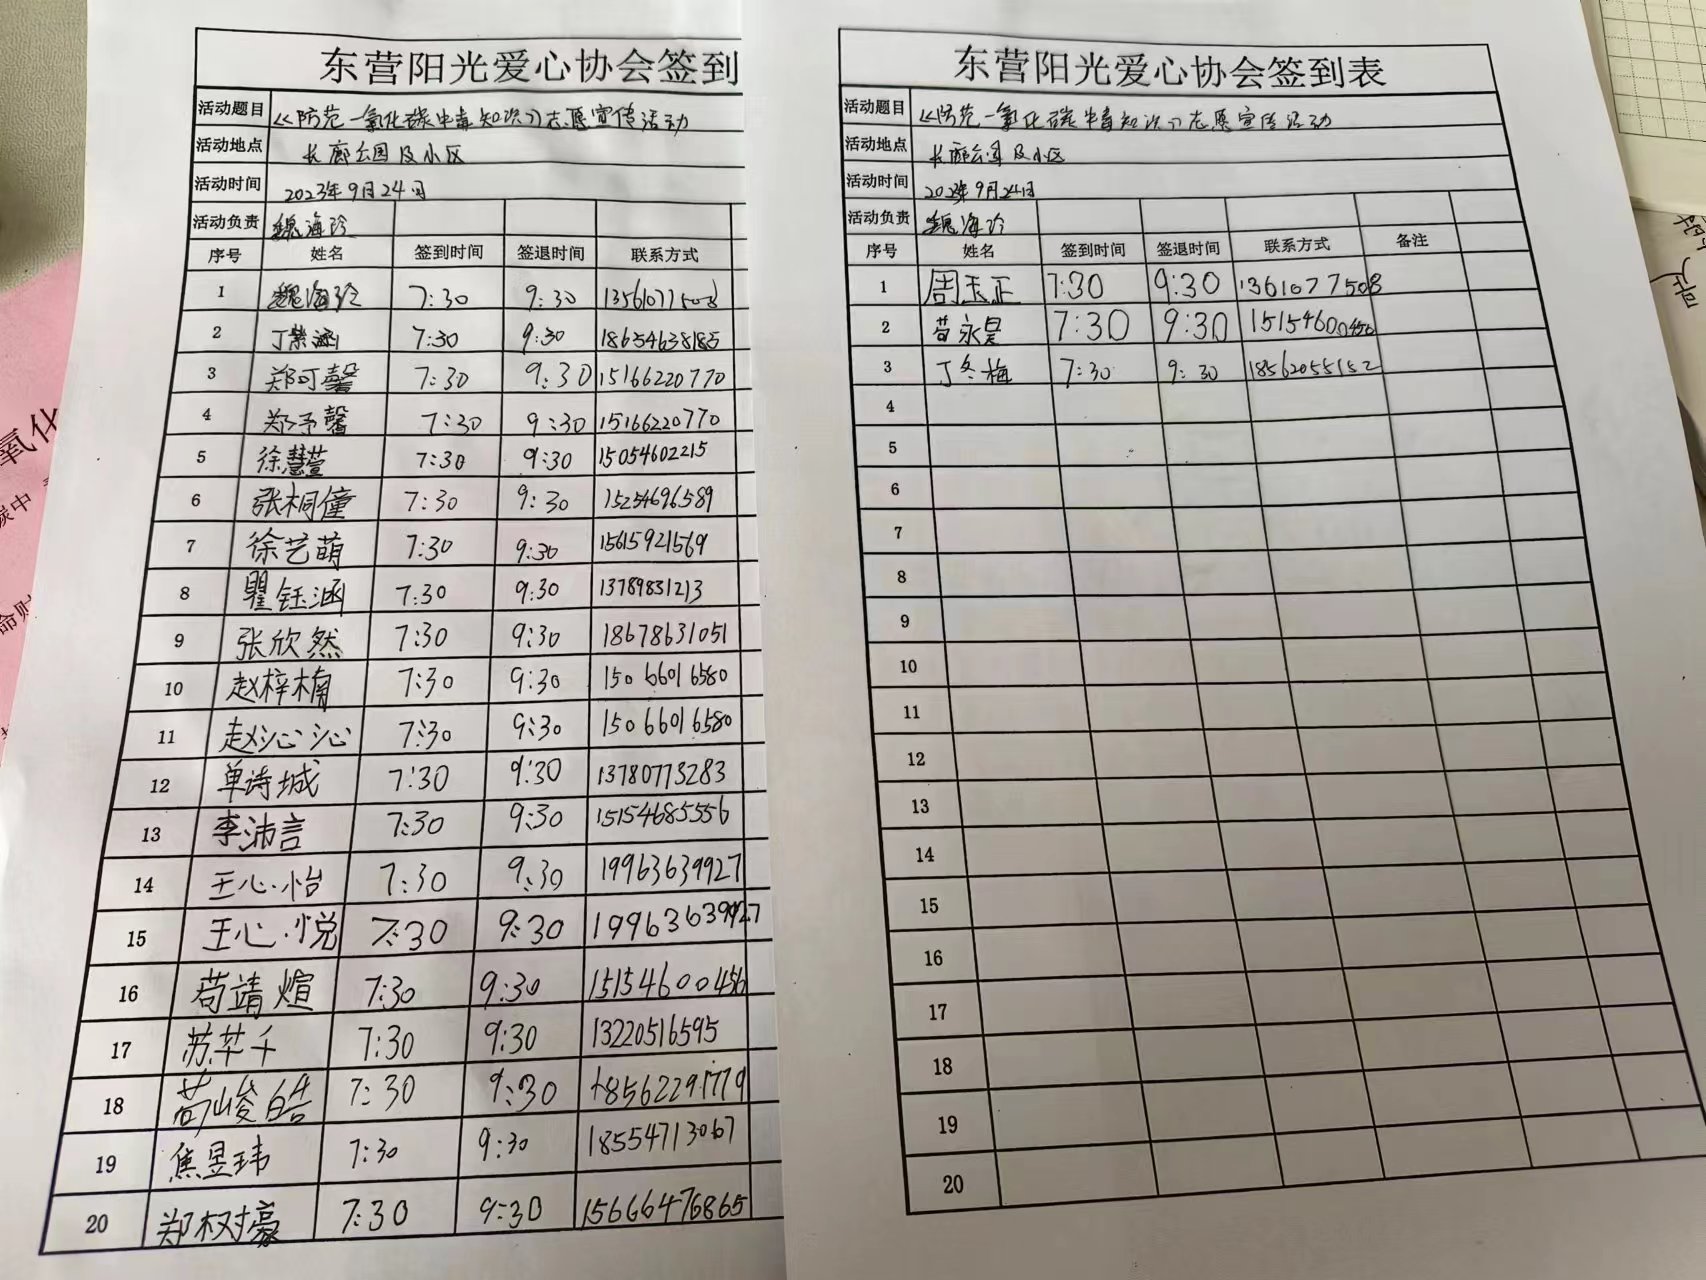 东营阳光爱心协会签到
活动题目 《防范一氧化碳中毒知识》志愿宣传活动
活动地点 长廊公园及小区
活动时间 2023年9月24日
活动负责 魏海玲
序号 姓名 签到时间 签退时间 联系方式
1 魏海玲 7:30 9:30 13561077508
2 丁紫涵 7:30 9:30 18654638185
3 郑可馨 7:30 9:30 15166220770
4 郑予馨 7:30 9:30 15166220770
5 徐慧萱 7:30 9:30 15054602215
6 张桐僮 7:30 9:30 15254696589
7 徐艺萌 7:30 9:30 15615921569
8 瞿钰涵 7:30 9:30 13789831213
9 张欣然 7:30 9:30 18678631051
10 赵梓楠 7:30 9:30 15066016580
11 赵沁沁 7:30 9:30 15066016580
12 单诗城 7:30 9:30 13780773283
13 李沛言 7:30 9:30 15154685556
14 王心怡 7:30 9:30 19963639927
15 王心悦 7:30 9:30 19963639927
16 苟靖煊 7:30 9:30 15154600456
17 苏芊千 7:30 9:30 13220516595
18 苟峻皓 7:30 9:30 18562291779
19 焦昱玮 7:30 9:30 18554713067
20 郑树豪 7:30 9:30 15666476865
东营阳光爱心协会签到表
活动题目 《防范一氧化碳中毒知识》志愿宣传活动
活动地点 长廊公园及小区
活动时间 2023年9月24日
活动负责 魏海玲
序号 姓名 签到时间 签退时间 联系方式 备注
1 周玉正 7:30 9:30 13610777508
2 苟永昊 7:30 9:30 15154600456
3 丁冬梅 7:30 9:30 18562055152
4
5
6
7
8
9
10
11
12
13
14
15
16
17
18
19
20
氧化
碳中